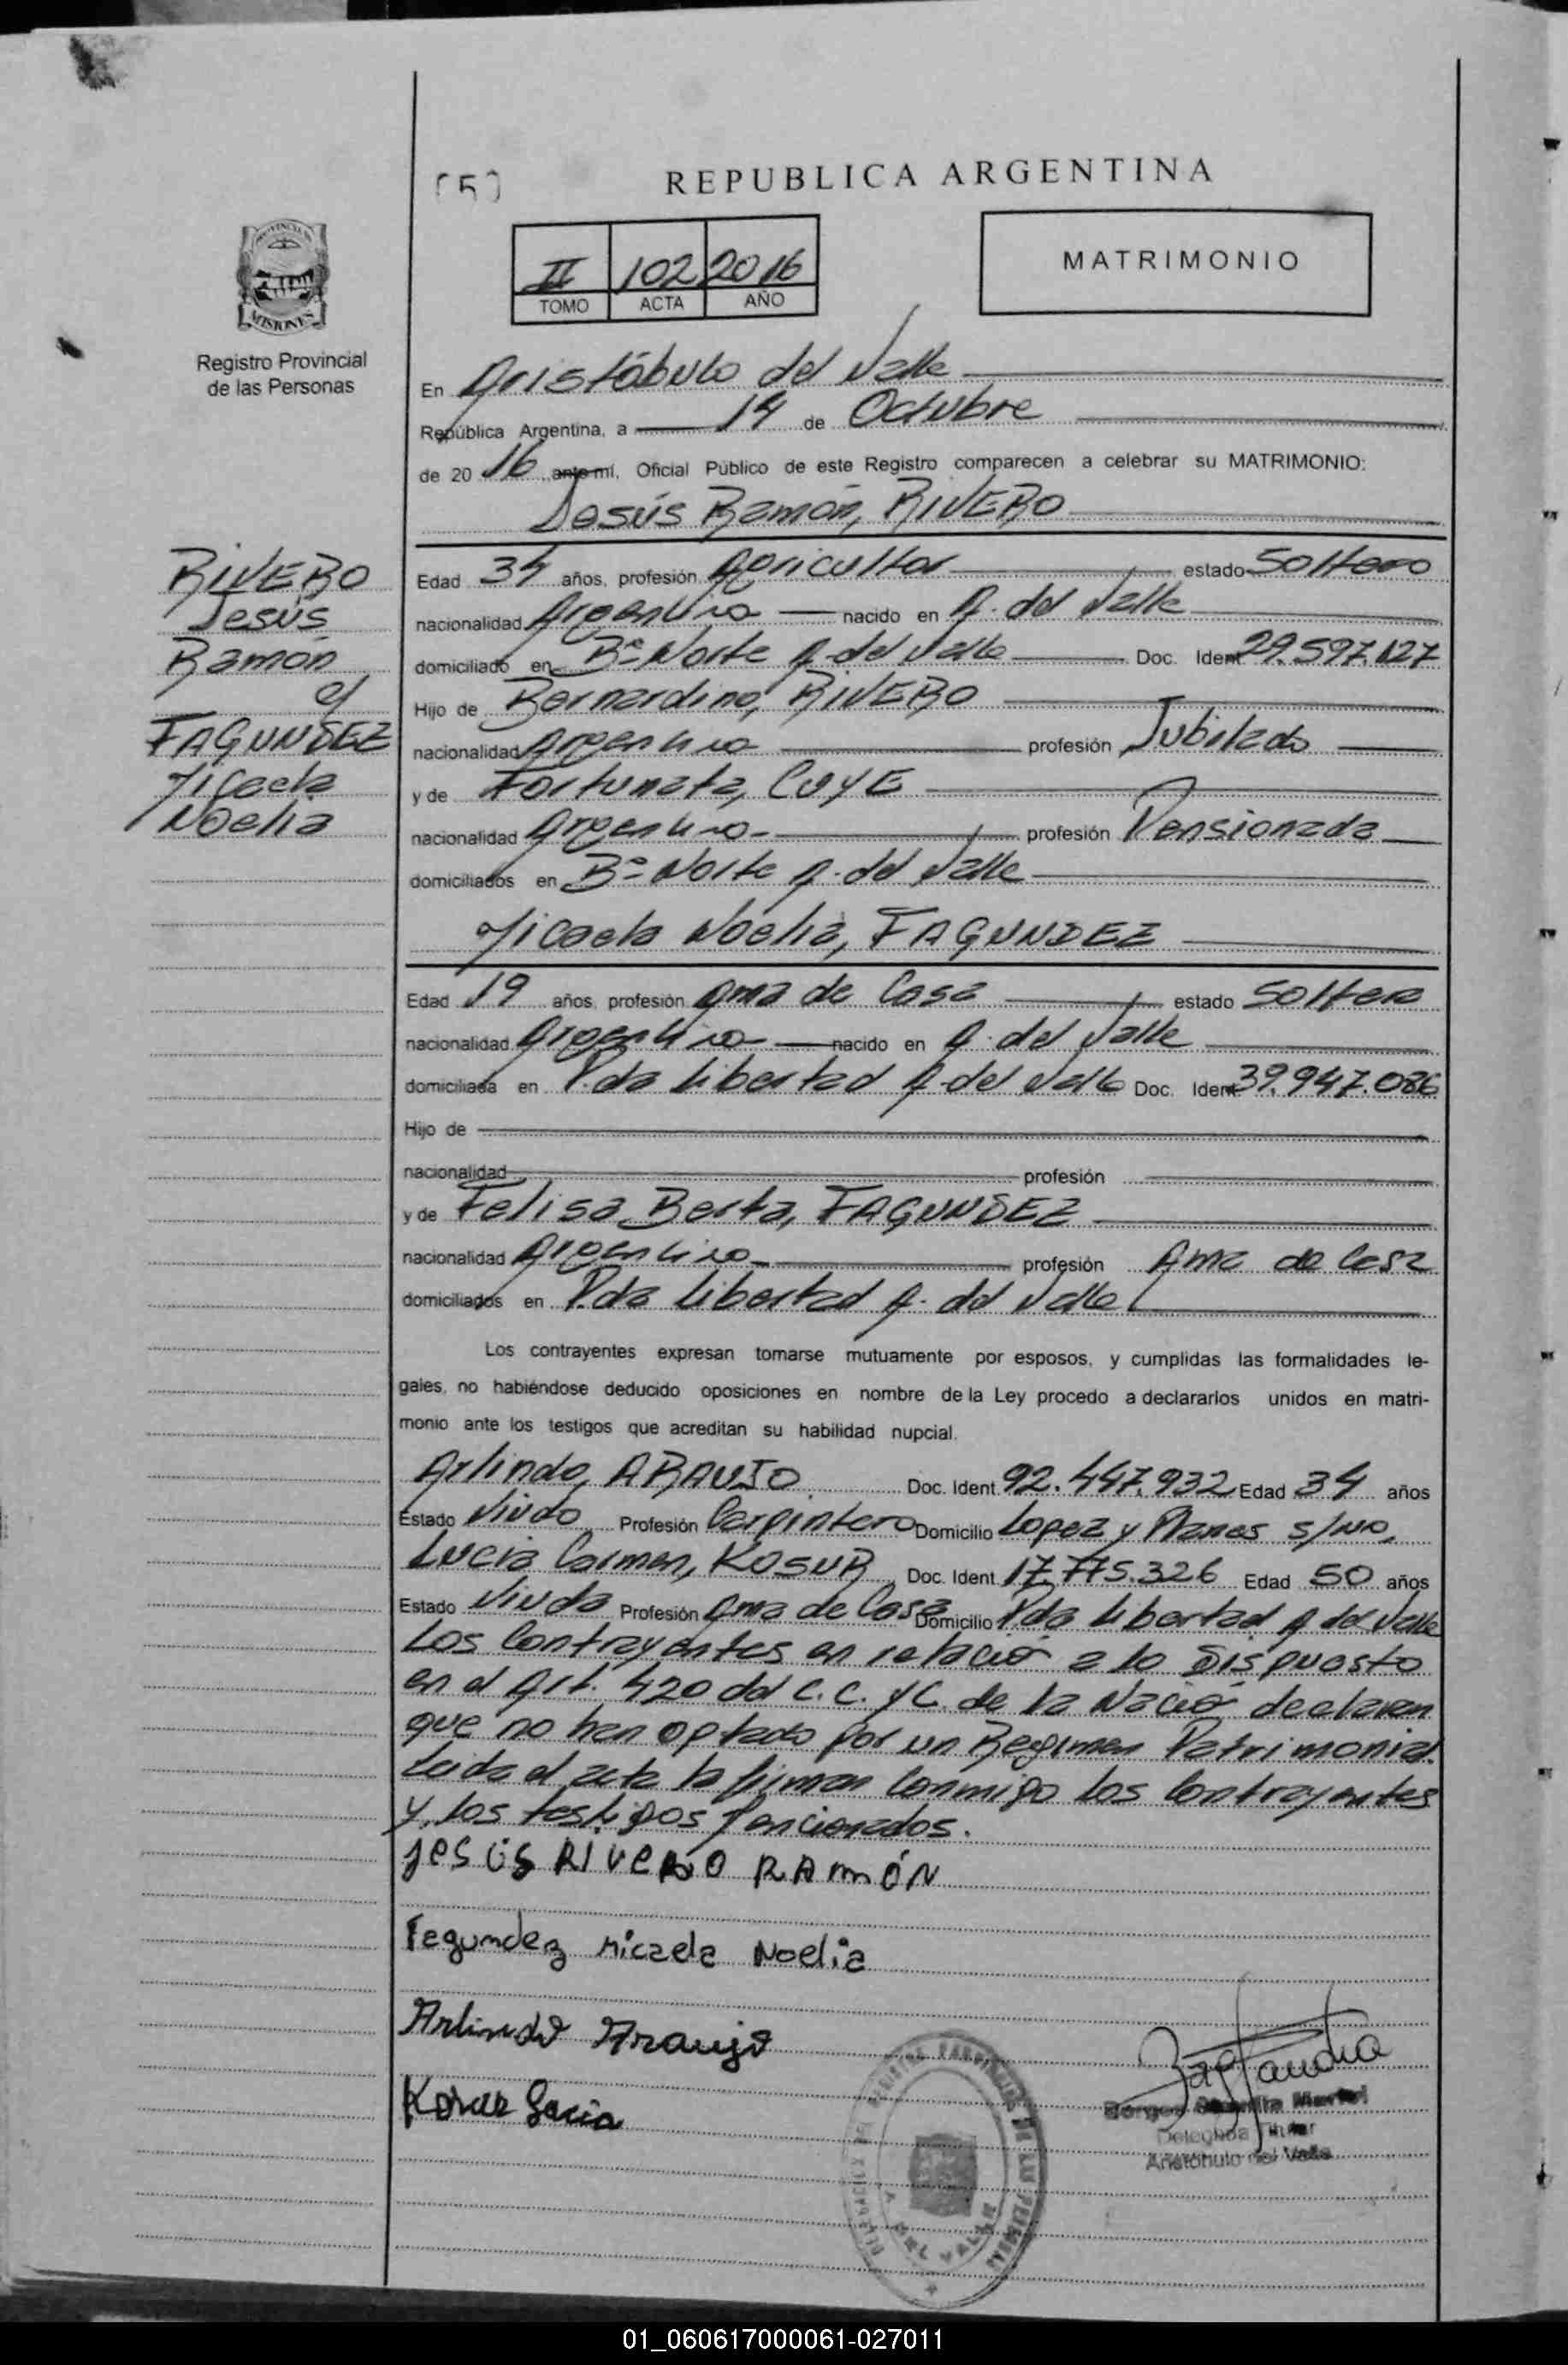 [5]
REPUBLICA ARGENTINA
MISIONES
Registro Provincial
de las Personas
II 102 2016
TOMO ACTA AÑO
MATRIMONIO
En Aristóbulo del Valle
República Argentina, a 14 de Octubre
de 20 16 ante mí, Oficial Público de este Registro comparecen a celebrar su MATRIMONIO:
Jesús Ramón, RIVERO
RIVERO
Jesús
Ramón
c/
FAGUNDEZ
Micaela
Noelia
Edad 34 años, profesión Agricultor estado Soltero
nacionalidad Argentina nacido en A. del Valle
domiciliado en Bº Norte A. del Valle Doc. Ident 29.597.127
Hijo de Bernardino, RIVERO
nacionalidad Argentina profesión Jubilado
y de Fortunata, CUYE
nacionalidad Argentina profesión Pensionada
domiciliados en Bº Norte A. del Valle
Micaela Noelia, FAGUNDEZ
Edad 19 años, profesión Ama de Casa estado Soltera
nacionalidad Argentina nacido en A. del Valle
domiciliada en P.da Libertad A. del Valle Doc. Ident 39.947.086
Hijo de
nacionalidad profesión
y de Felisa Berta, FAGUNDEZ
nacionalidad Argentina profesión Ama de Casa
domiciliados en P.da Libertad A. del Valle
Los contrayentes expresan tomarse mutuamente por esposos, y cumplidas las formalidades le-
gales, no habiéndose deducido oposiciones en nombre de la Ley procedo a declararlos unidos en matri-
monio ante los testigos que acreditan su habilidad nupcial.
Arlindo, ARAUJO Doc. Ident. 92.447.932 Edad 34 años
Estado Viudo Profesión Carpintero Domicilio Lopez y Planes s/no.
Lucia Carmen, KOSUR Doc. Ident. 17.775.326 Edad 50 años
Estado Viuda Profesión Ama de Casa Domicilio P.da Libertad A del Valle
Los Contrayentes en relació a lo Dispuesto
en el Art. 420 del C.C. y C. de la Nació declaran
que no han optado por un Regimen Patrimonial.
Leida el acta la firman conmigo los Contrayentes
y los testigos Mencionados.
JESÚS RIVERO RAMÓN
Fagundez Micaela Noelia
Arlindo Araujo
Kosur Lucia
Delegada Titular
Aristóbulo del Valle
01_060617000061-027011